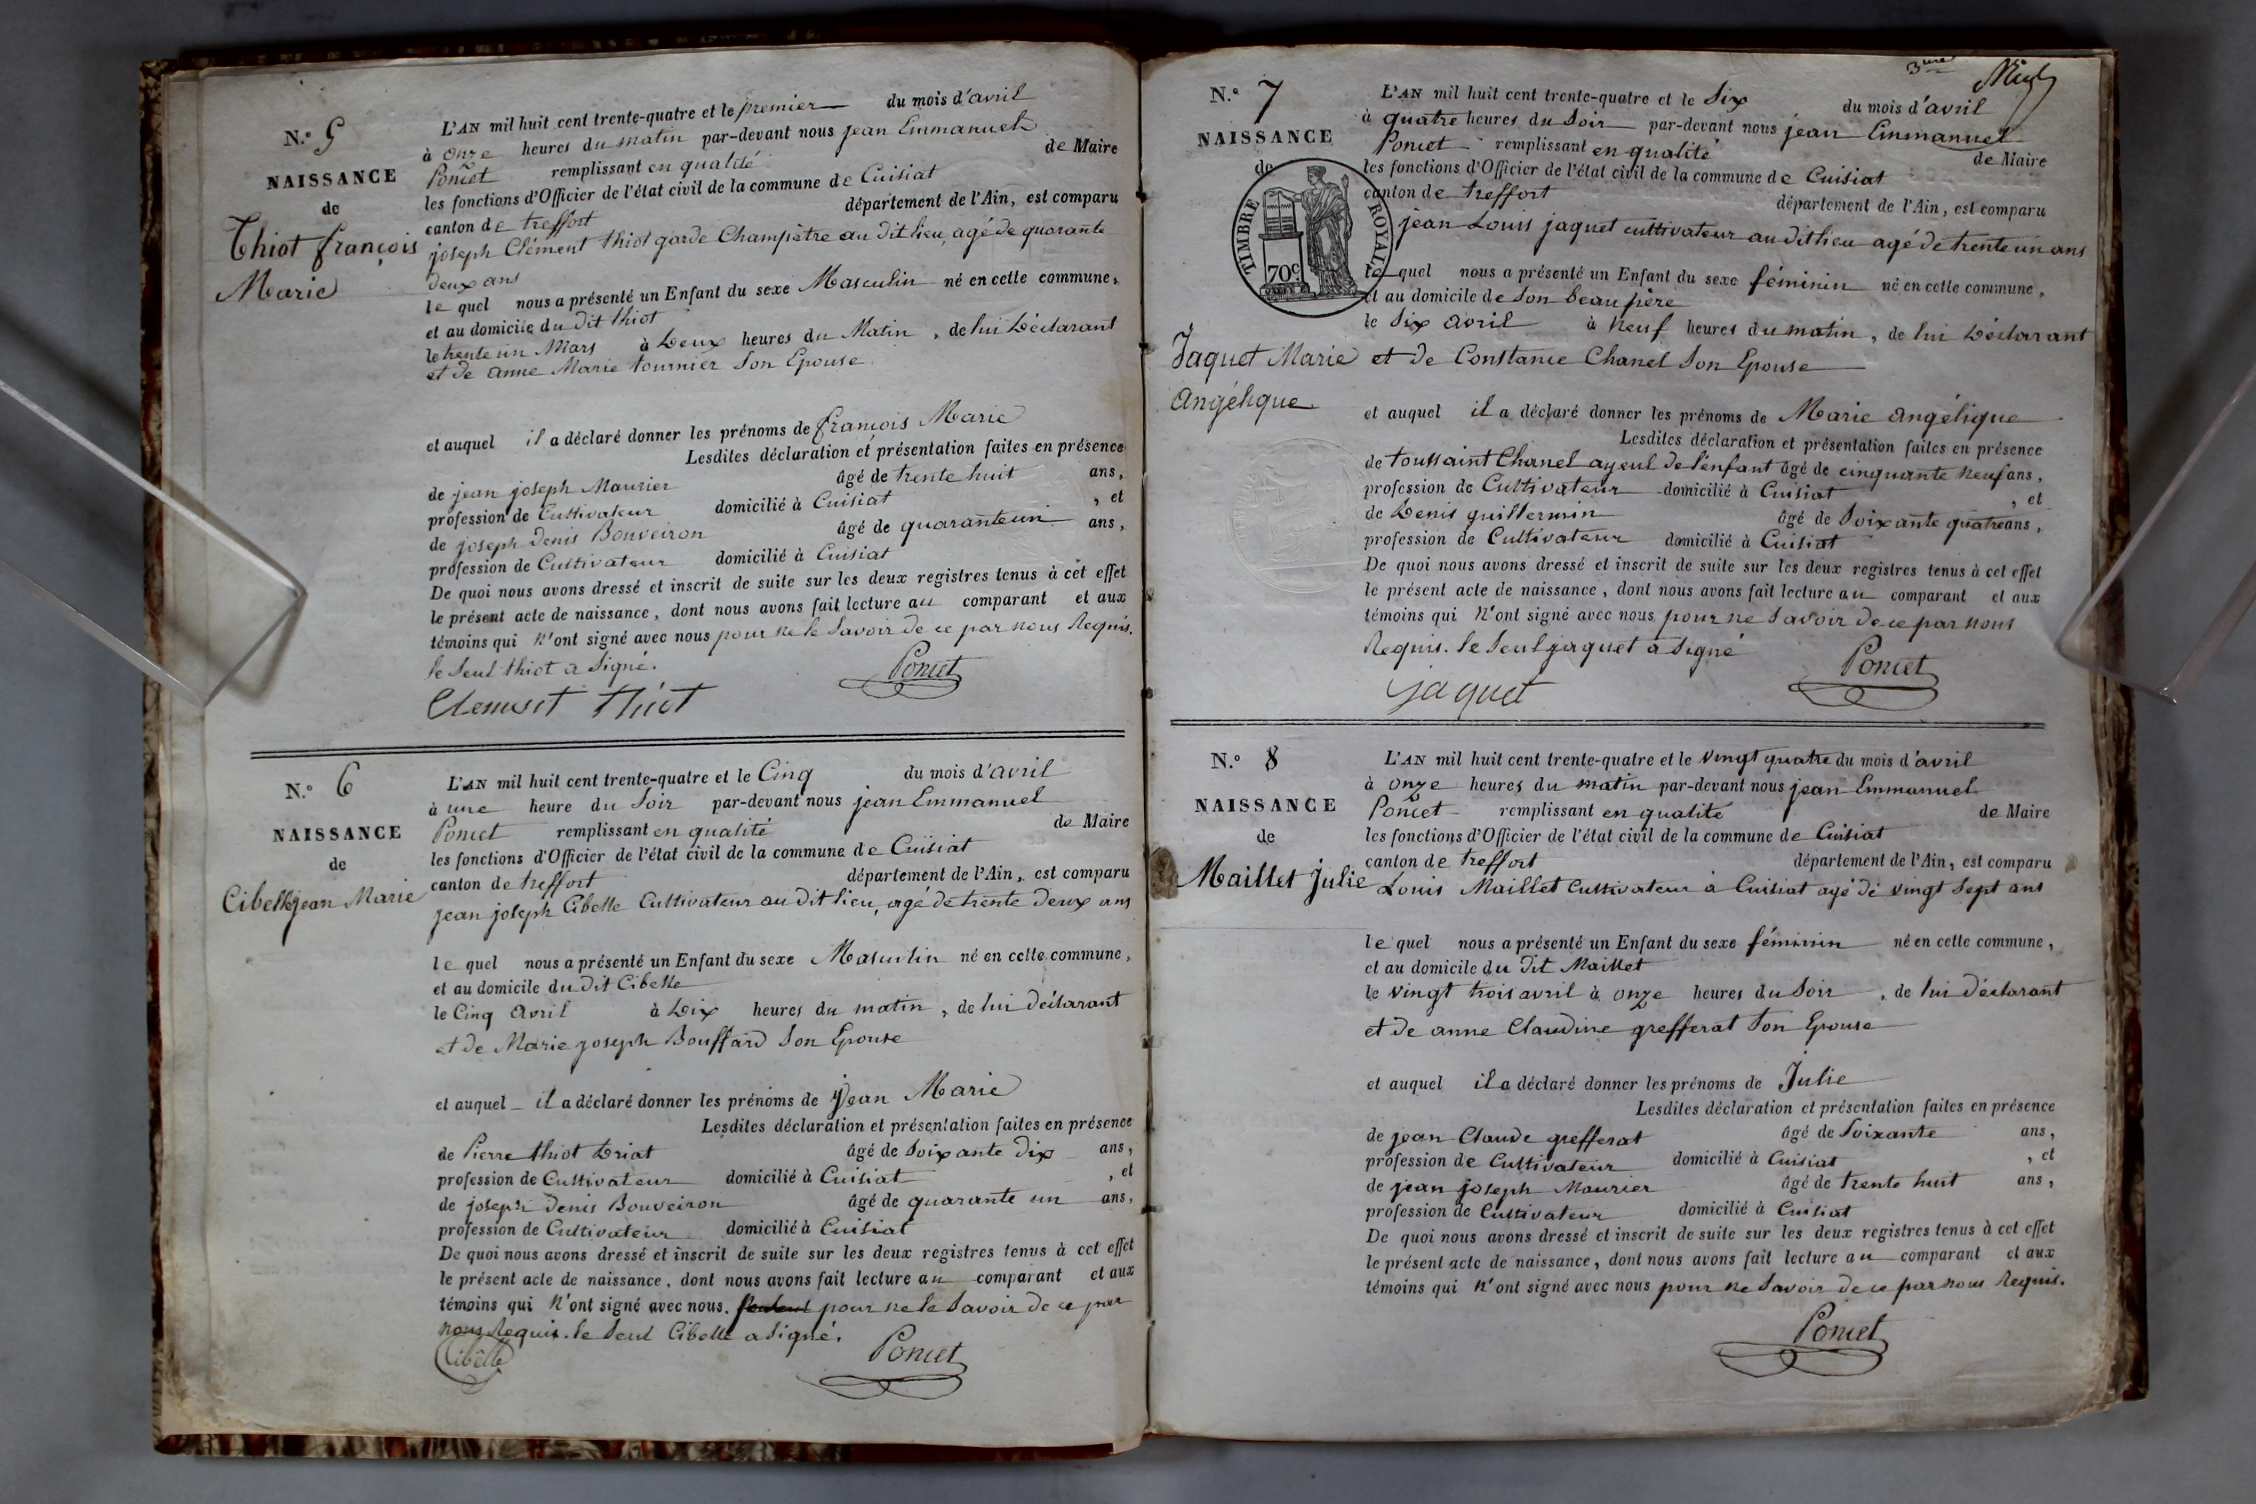 N.° 5
NAISSANCE
de
Thiot françois
Marie
L'AN mil huit cent trente-quatre et le premier du mois d'avril
à onze heures du matin par-devant nous jean Emmanuel
Poncet remplissant en qualité de Maire
les fonctions d'Officier de l'état civil de la commune de Cuisiat
canton de treffort département de l'Ain, est comparu
joseph Clément thiot garde Champêtre au dit lieu, agé de quarante
deux ans
le quel nous a présenté un Enfant du sexe Masculin né en cette commune,
et au domicile du dit thiot
le trente un Mars à Deux heures du Matin, de lui Déclarant
et de anne Marie tournier Son Epouse
et auquel il a déclaré donner les prénoms de françois Marie
Lesdites déclaration et présentation faites en présence
de jean joseph Maurier âgé de trente huit ans,
profession de Cultivateur domicilié à Cuisiat, et
de joseph Denis Bouveiron âgé de quarante un ans,
profession de Cultivateur domicilié à Cuisiat
De quoi nous avons dressé et inscrit de suite sur les deux registres tenus à cet effet
le présent acte de naissance, dont nous avons fait lecture au comparant et aux
témoins qui n'ont signé avec nous pour ne le Savoir de ce par nous Requis.
le Seul thiot a Signé.
Clement thiot Poncet
N.° 6
NAISSANCE
de
Cibelle jean Marie
L'AN mil huit cent trente-quatre et le Cinq du mois d'avril
à une heure du Soir par-devant nous jean Emmanuel
Poncet remplissant en qualité de Maire
les fonctions d'Officier de l'état civil de la commune de Cuisiat
canton de treffort département de l'Ain, est comparu
jean joseph Cibelle Cultivateur au dit lieu, agé de trente Deux ans
le quel nous a présenté un Enfant du sexe Masculin né en cette commune,
et au domicile du dit Cibelle
le Cinq avril à Dix heures du matin, de lui Déclarant
et de Marie joseph Bouffard Son Epouse
et auquel il a déclaré donner les prénoms de jean Marie
Lesdites déclaration et présentation faites en présence
de Pierre thiot Driat âgé de Soixante Dix ans,
profession de Cultivateur domicilié à Cuisiat, et
de joseph Denis Bouveiron âgé de quarante un ans,
profession de Cultivateur domicilié à Cuisiat
De quoi nous avons dressé et inscrit de suite sur les deux registres tenus à cet effet
le présent acte de naissance, dont nous avons fait lecture au comparant et aux
témoins qui n'ont signé avec nous. pour ne le Savoir de ce par
nous Requis. le Seul Cibelle a Signé.
Cibelle Poncet
3me
N.° 7
NAISSANCE
de
TIMBRE ROYAL
70c
Jaquet Marie
Angélique
L'AN mil huit cent trente-quatre et le Six du mois d'avril
à quatre heures du Soir par-devant nous jean Emmanuel
Poncet remplissant en qualité de Maire
les fonctions d'Officier de l'état civil de la commune de Cuisiat
canton de treffort département de l'Ain, est comparu
jean Louis jaquet cultivateur au dit lieu agé de trente un ans
le quel nous a présenté un Enfant du sexe féminin né en cette commune,
et au domicile de Son beau père
le Six avril à Neuf heures du matin, de lui Déclarant
et de Constance Chanel Son Epouse
et auquel il a déclaré donner les prénoms de Marie Angélique
Lesdites déclaration et présentation faites en présence
de toussaint Chanel ayeul de l'enfant âgé de cinquante neuf ans,
profession de Cultivateur domicilié à Cuisiat, et
de Denis guillermin âgé de Soixante quatre ans,
profession de Cultivateur domicilié à Cuisiat
De quoi nous avons dressé et inscrit de suite sur les deux registres tenus à cet effet
le présent acte de naissance, dont nous avons fait lecture au comparant et aux
témoins qui n'ont signé avec nous pour ne Savoir de ce par nous
Requis. le Seul jaquet a Signé
jaquet Poncet
N.° 8
NAISSANCE
de
Maillet Julie
L'AN mil huit cent trente-quatre et le vingt quatre du mois d'avril
à onze heures du matin par-devant nous jean Emmanuel
Poncet remplissant en qualité de Maire
les fonctions d'Officier de l'état civil de la commune de Cuisiat
canton de treffort département de l'Ain, est comparu
Louis Maillet Cultivateur à Cuisiat agé de vingt Sept ans
le quel nous a présenté un Enfant du sexe féminin né en cette commune,
et au domicile du dit Maillet
le vingt trois avril à onze heures du Soir, de lui Déclarant
et de anne Claudine grefferat Son Epouse
et auquel il a déclaré donner les prénoms de Julie
Lesdites déclaration et présentation faites en présence
de jean Claude grefferat âgé de Soixante ans,
profession de Cultivateur domicilié à Cuisiat, et
de jean joseph Maurier âgé de trente huit ans,
profession de Cultivateur domicilié à Cuisiat
De quoi nous avons dressé et inscrit de suite sur les deux registres tenus à cet effet
le présent acte de naissance, dont nous avons fait lecture au comparant et aux
témoins qui n'ont signé avec nous pour ne Savoir de ce par nous Requis.
Poncet